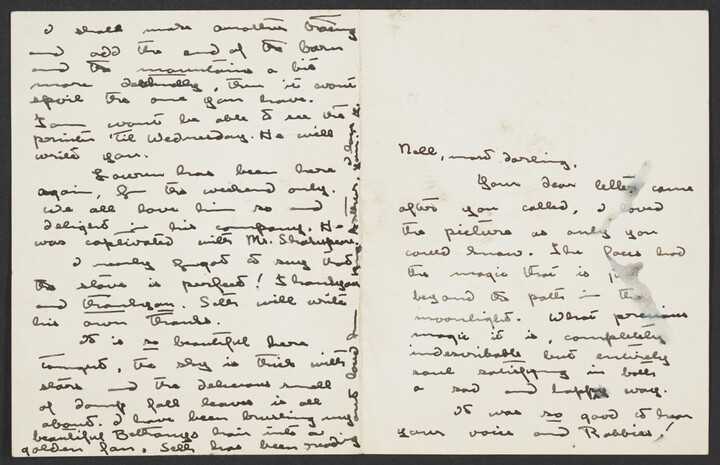 I shall make another tracing
and add the end of the barn
and the mountains a bit
more delicately, then it wont
spoil the one you have.
Sam wont be able to see the
printer 'til Wednesday. He will
write you.
Lauren has been here
again, for the weekend only.
We all love him so and
delight in his company. He
was captivated with Mr. Shakespeare.
I nearly forgot to say that
the stove is perfect! Thankyou
and thankyou. Seth will write
his own thanks.
It is so beautiful here
tonight, the sky is thick with
stars and the delicious smell
of damp fall leaves is all
about. I have been brushing my
beautiful Bethany's hair into a
golden fan. Seth has been reading
Nell, most darling,
Your dear letter came
after you called, I loved
the picture as only you
could know. The faces had
the magic that is
beyond the path in the
moonlight. What precious
magic it is, completely
indescribable but entirely
soul satisfying in both
a sad and happy way.
It was so good to hear
your voice and Robbies!